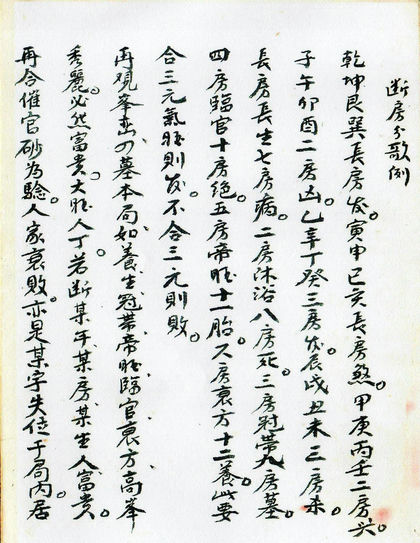 断房分歌例
乾坤艮巽長房发。寅申巳亥長房煞。甲庚丙壬二房兴。
子午卯酉二房凶。乙辛丁癸三房发。辰戌丑未三房杀。
長房長生七房病。二房沐浴八房死。三房冠带九房墓。
四房臨官十房絶。五房帝旺十一胎。六房衰方十二養。此要
合三元氣旺則发。不合三元則敗。
再观峯峦四墓本局。如養、生、冠带、帝旺、臨官、衰方高峯
秀麗。必然富貴。大旺人丁。若断某年某房某生人富貴。
再合催官砂為驗。人家衰敗。亦是某字失位于局内居